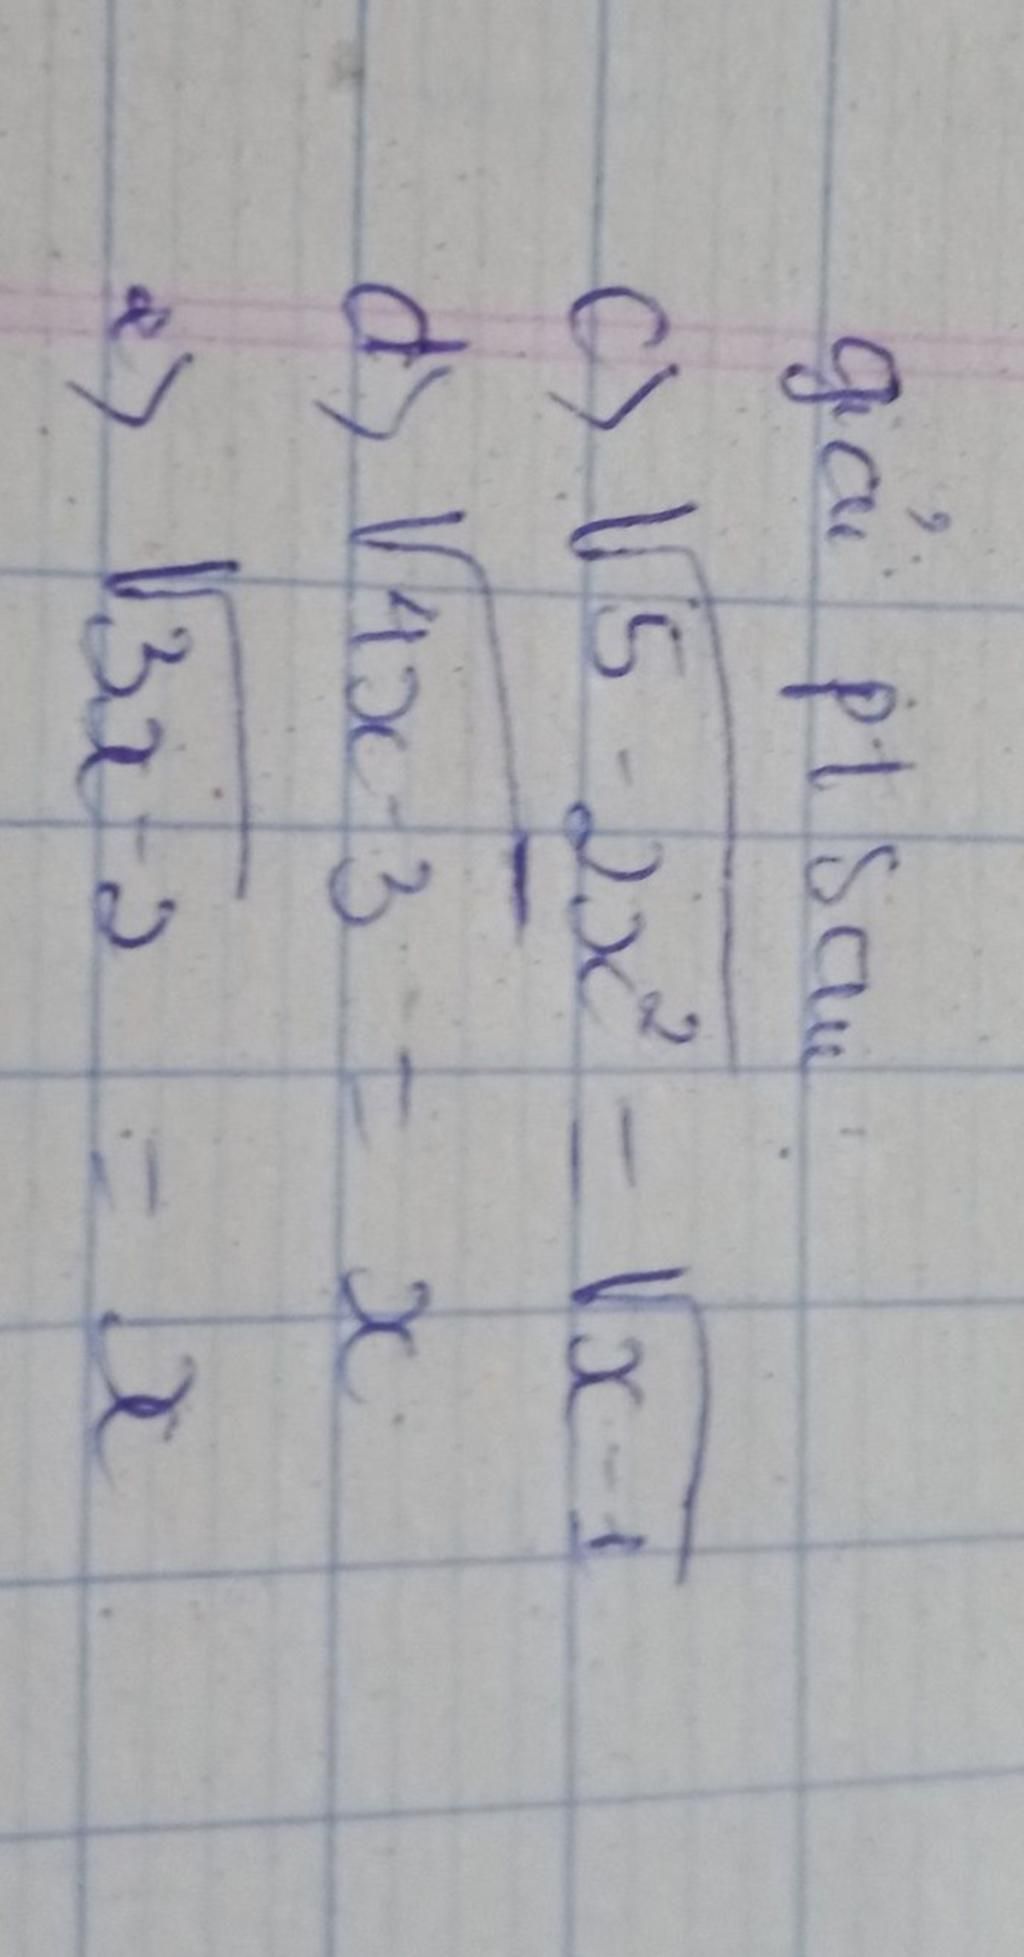 giải pt sau
c) √5 - 2x² = √x - 1
d) √4x - 3 = x
e) √3x - 2 = x